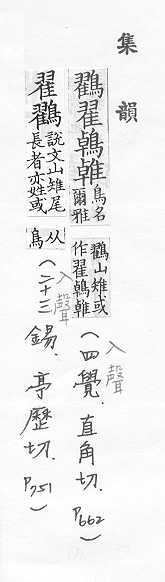 集韻
鸐翟鵫 鳥名爾雅鸐山雉或作翟鵫
（入聲 四覺. 直角切. P662）
翟鸐 說文山雉尾長者亦姓或从鳥
（入聲 二十三錫. 亭歷切. P751）